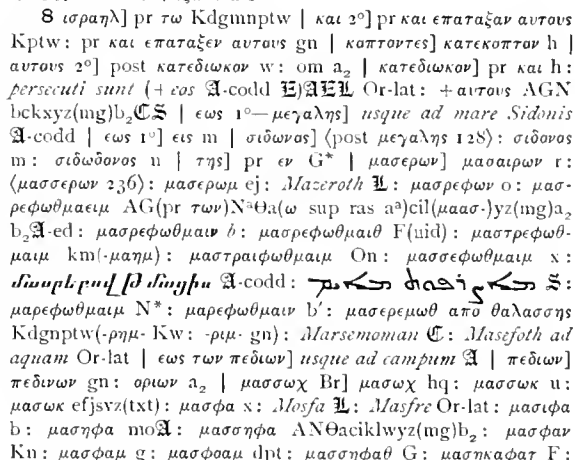 8 ισραηλ] pr τω Kdgmnptw | και 2°] pr και επαταξαν αυτους
Kptw: pr και επαταξεν αυτους gn | κοπτοντες] κατεκοπτον h |
αυτους 2°] post κατεδιωκον w: om a₂ | κατεδιωκον] pr και h:
persecuti sunt (+ eos 𝕬-codd 𝕰)𝕬𝕰𝕷 Or-lat: + αυτους AGN
bckxyz(mg)b₂ℭ𝕾 | εως 1°—μεγαλης] usque ad mare Sidonis
𝕬-codd | εως 1°] εις m | σιδωνος] ⟨post μεγαλης 128⟩: σιδονος
m: σιδωδονος n | της] pr εν G* | μασερων] μασαιρων r:
⟨μασσερων 236⟩: μασερωμ ej: Mazeroth 𝕷: μασρεφων o: μασ-
ρεφωθμαειμ AG(pr των)NᵃΘa(ω sup ras aᵃ)cil(μαασ-)yz(mg)a₂
b₂𝕬-ed: μασρεφωθμαιν b: μασρεφωθμαιθ F(uid): μαστρεφωθ-
μαιμ km(-μαημ): μαστραιφωθμαιμ On: μασσεφωθμαιμ x:
𝕬-codd: 𝕾:
μαρεφωθμαιμ N*: μαρεφωθμαιν b′: μασερεμωθ απο θαλασσης
Kdgnptw(-ρημ- Kw: -ριμ- gn): Marsemoman ℭ: Masefoth ad
aquam Or-lat | εως των πεδιων] usque ad campum 𝕬 | πεδιων]
πεδινων gn: οριων a₂ | μασσωχ Br] μασωχ hq: μασσωκ u:
μασωκ efjsvz(txt): μασφα x: Mosfa 𝕷: Masfre Or-lat: μασιφα
b: μασηφα mo𝕬: μασσηφα ANΘaciklwyz(mg)b₂: μασφαν
Kn: μασφαμ g: μασφοαμ dpt: μασσηφαθ G: μασηκαφατ F: